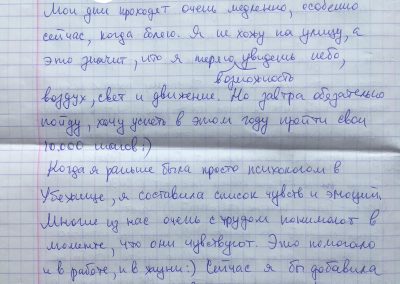 Мои дни проходят очень медленно, особенно
сейчас, когда болею. Я не хожу на улицу, а
это значит, что я теряю увидеть небо,
возможность
воздух, свет и движение. Но завтра обязательно
пойду, хочу успеть в этом году пройти свои
10.000 шагов:)
Когда я раньше была просто психологом в
Убежище, я составила список чувств и эмоций.
Многие из нас очень с трудом понимают в
моменте, что они чувствуют. Это помогало
и в работе, и в жизни:) Сейчас я бы добавила